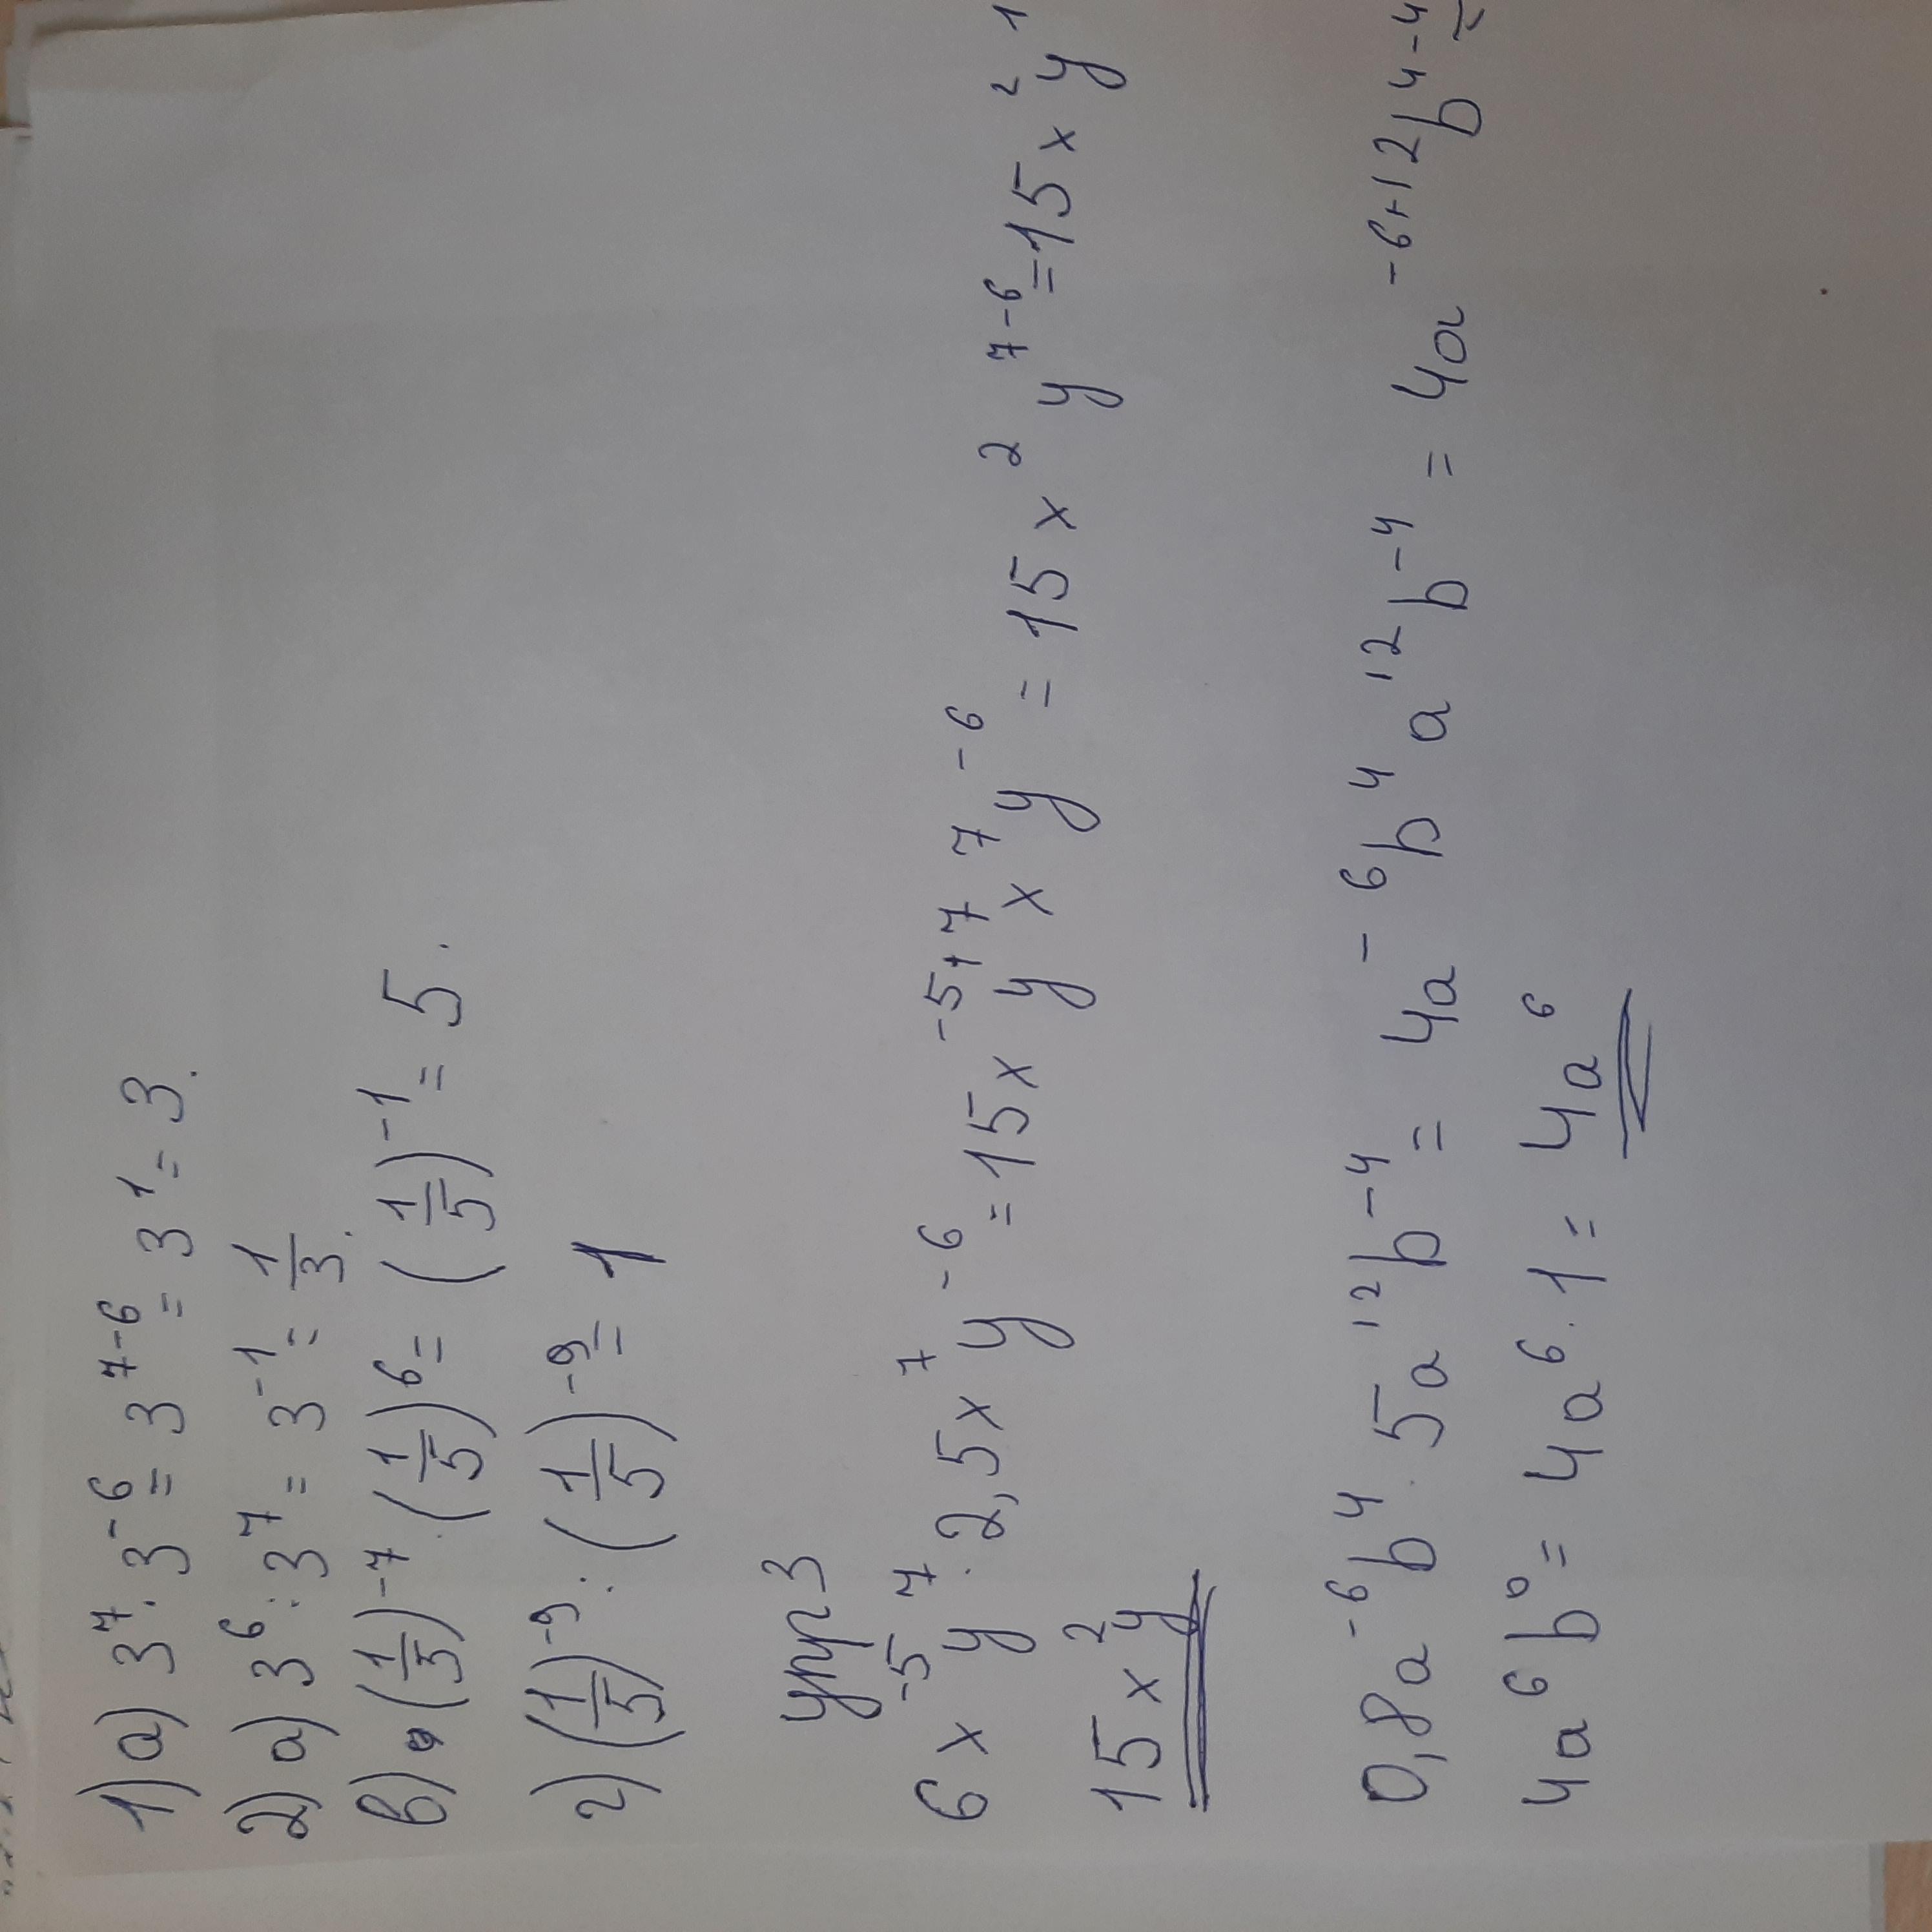 1) а) 3⁷·3⁻⁶ = 3⁷⁻⁶ = 3¹ = 3.
2) а) 3⁶:3⁷ = 3⁻¹ = 1/3.
в) (1/5)⁻⁷·(1/5)⁶ = (1/5)⁻¹ = 5.
г) (1/5)⁻⁹ : (1/5)⁻⁹ = 1
упр 3
6x⁻⁵y⁷·2,5x⁷y⁻⁶ = 15x⁻⁵⁺⁷y x⁷y⁻⁶ = 15x²y⁷⁻⁶ = 15x²y¹
15x²y
0,8a⁻⁶b⁴·5a¹²b⁻⁴ = 4a⁻⁶b⁴a¹²b⁻⁴ = 4a⁻⁶⁺¹²b⁴⁻⁴ =
4a⁶b⁰ = 4a⁶·1 = 4a⁶